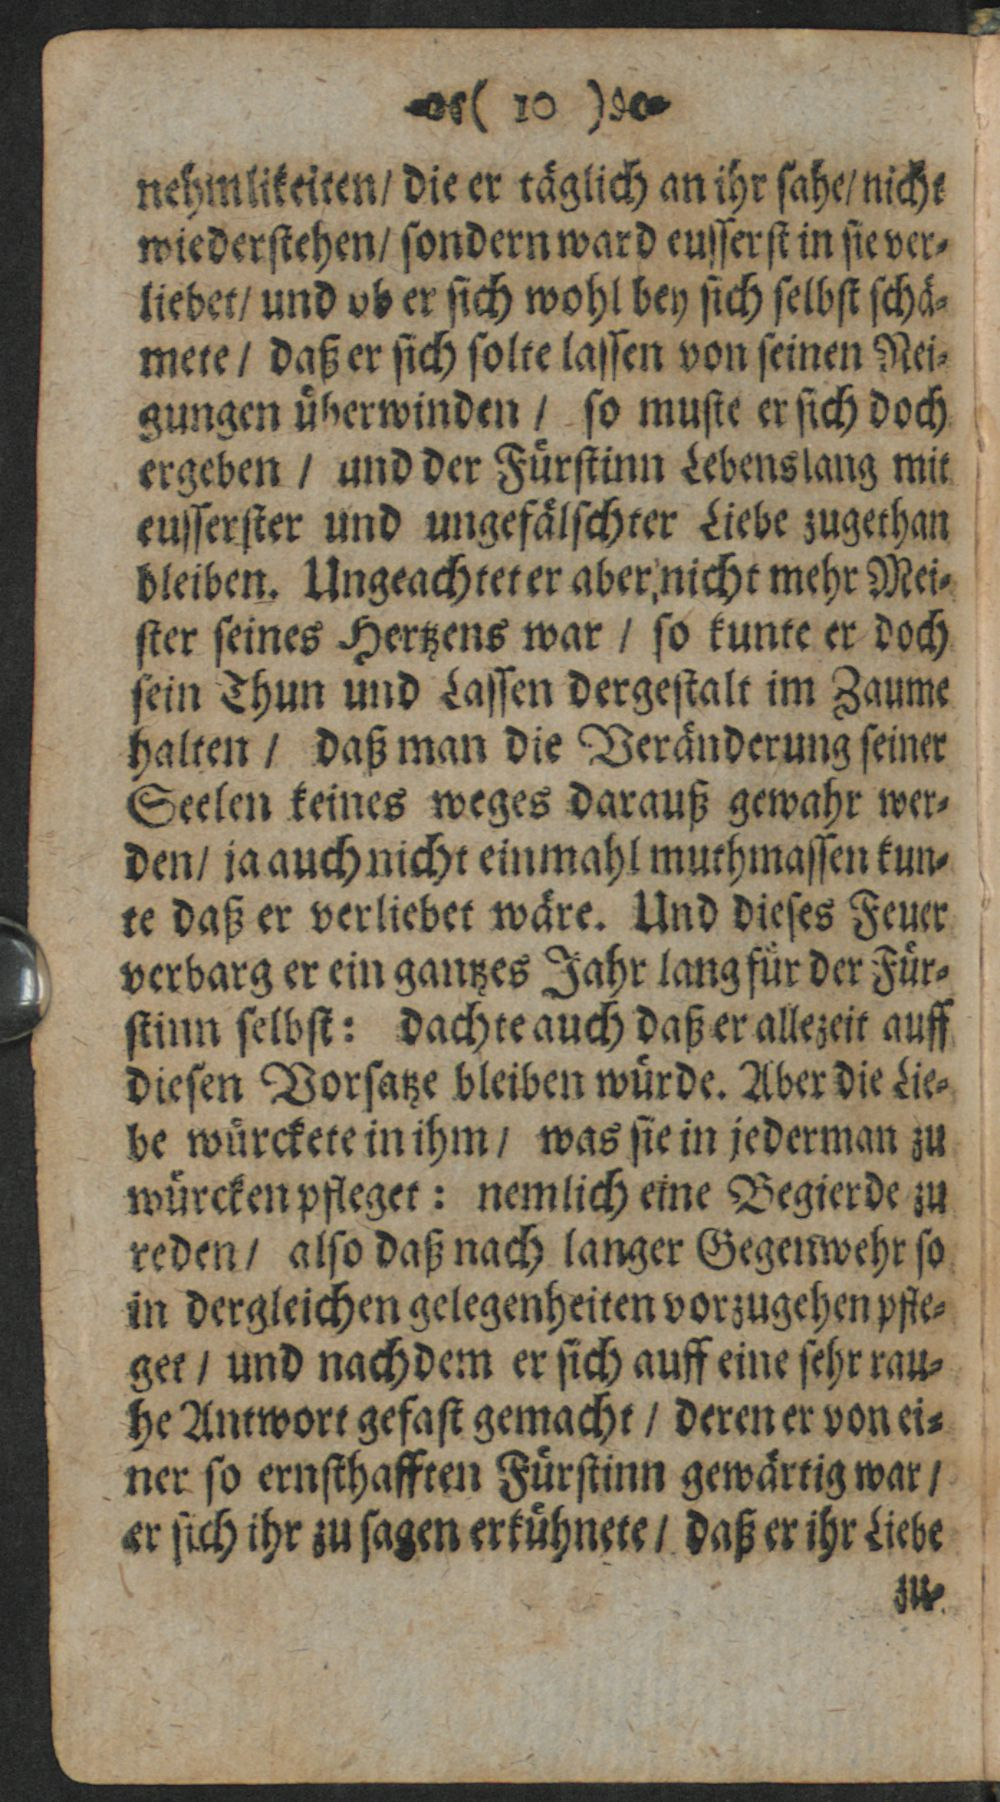 ( 10 )
nehmlikeiten/ die er täglich an ihr sahe/ nicht
wiederstehen/ sondern ward eusserst in sie ver-
liebet/ und ob er sich wohl bey sich selbst schä-
mete / daß er sich solte lassen von seinen Nei-
gungen überwinden / so muste er sich doch
ergeben / und der Fürstinn Lebenslang mit
eusserster und ungefälschter Liebe zugethan
bleiben. Ungeachtet er aber nicht mehr Mei-
ster seines Hertzens war / so kunte er doch
sein Thun und Lassen dergestalt im Zaume
halten / daß man die Veränderung seiner
Seelen keines weges darauß gewahr wer-
den/ ja auch nicht einmahl muthmassen kun-
te daß er verliebet wäre. Und dieses Feuer
verbarg er ein gantzes Jahr lang für der Für-
stinn selbst: dachte auch daß er allezeit auff
diesen Vorsatze bleiben würde. Aber die Lie-
be würckete in ihm / was sie in jederman zu
würcken pfleget: nemlich eine Begierde zu
reden / also daß nach langer Gegenwehr so
in dergleichen gelegenheiten vorzugehen pfle-
get / und nachdem er sich auff eine sehr rau-
he Antwort gefast gemacht / deren er von ei-
ner so ernsthafften Fürstinn gewärtig war /
er sich ihr zu sagen erkühnete / daß er ihr Liebe
zu-